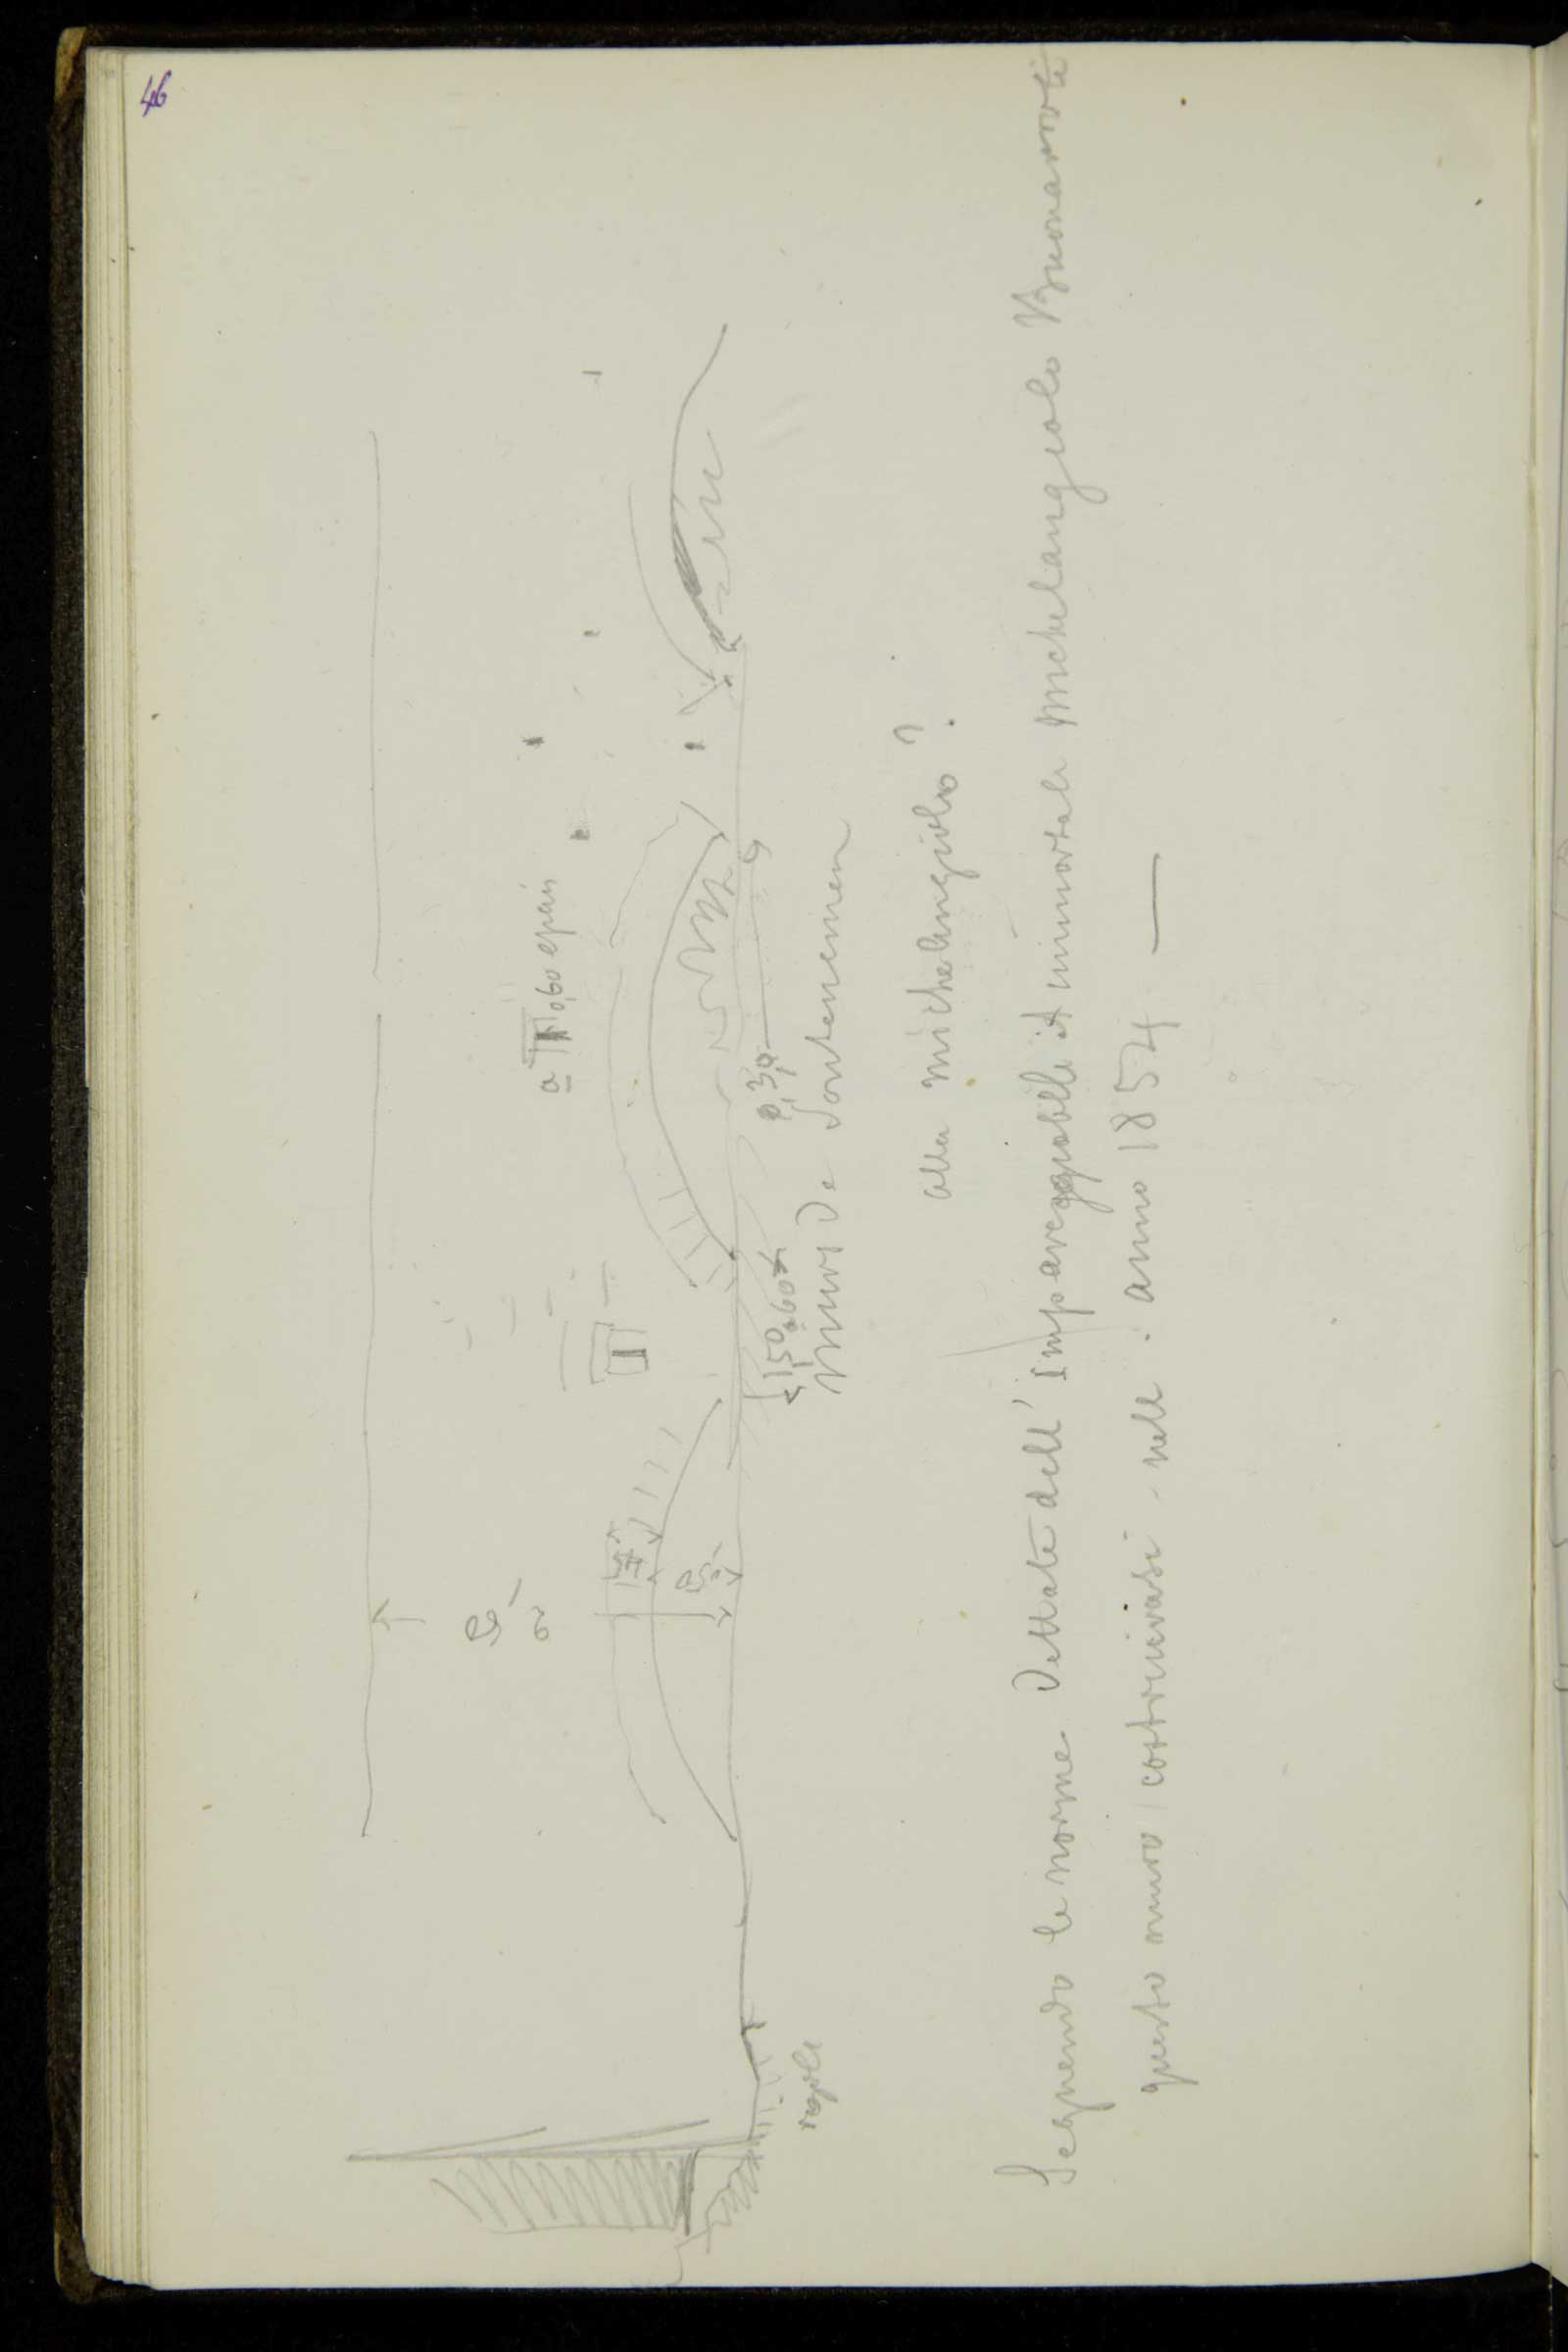 46
a 0,60 epais
0,30
1,50 0,60
Murs de Soutenemen
regole
alla michelangiolo?
Seguendo le norme dettate dell' impareggiabile è immortale michelangiolo Buonarroti
questo muro costruivasi nell. anno 1854 —